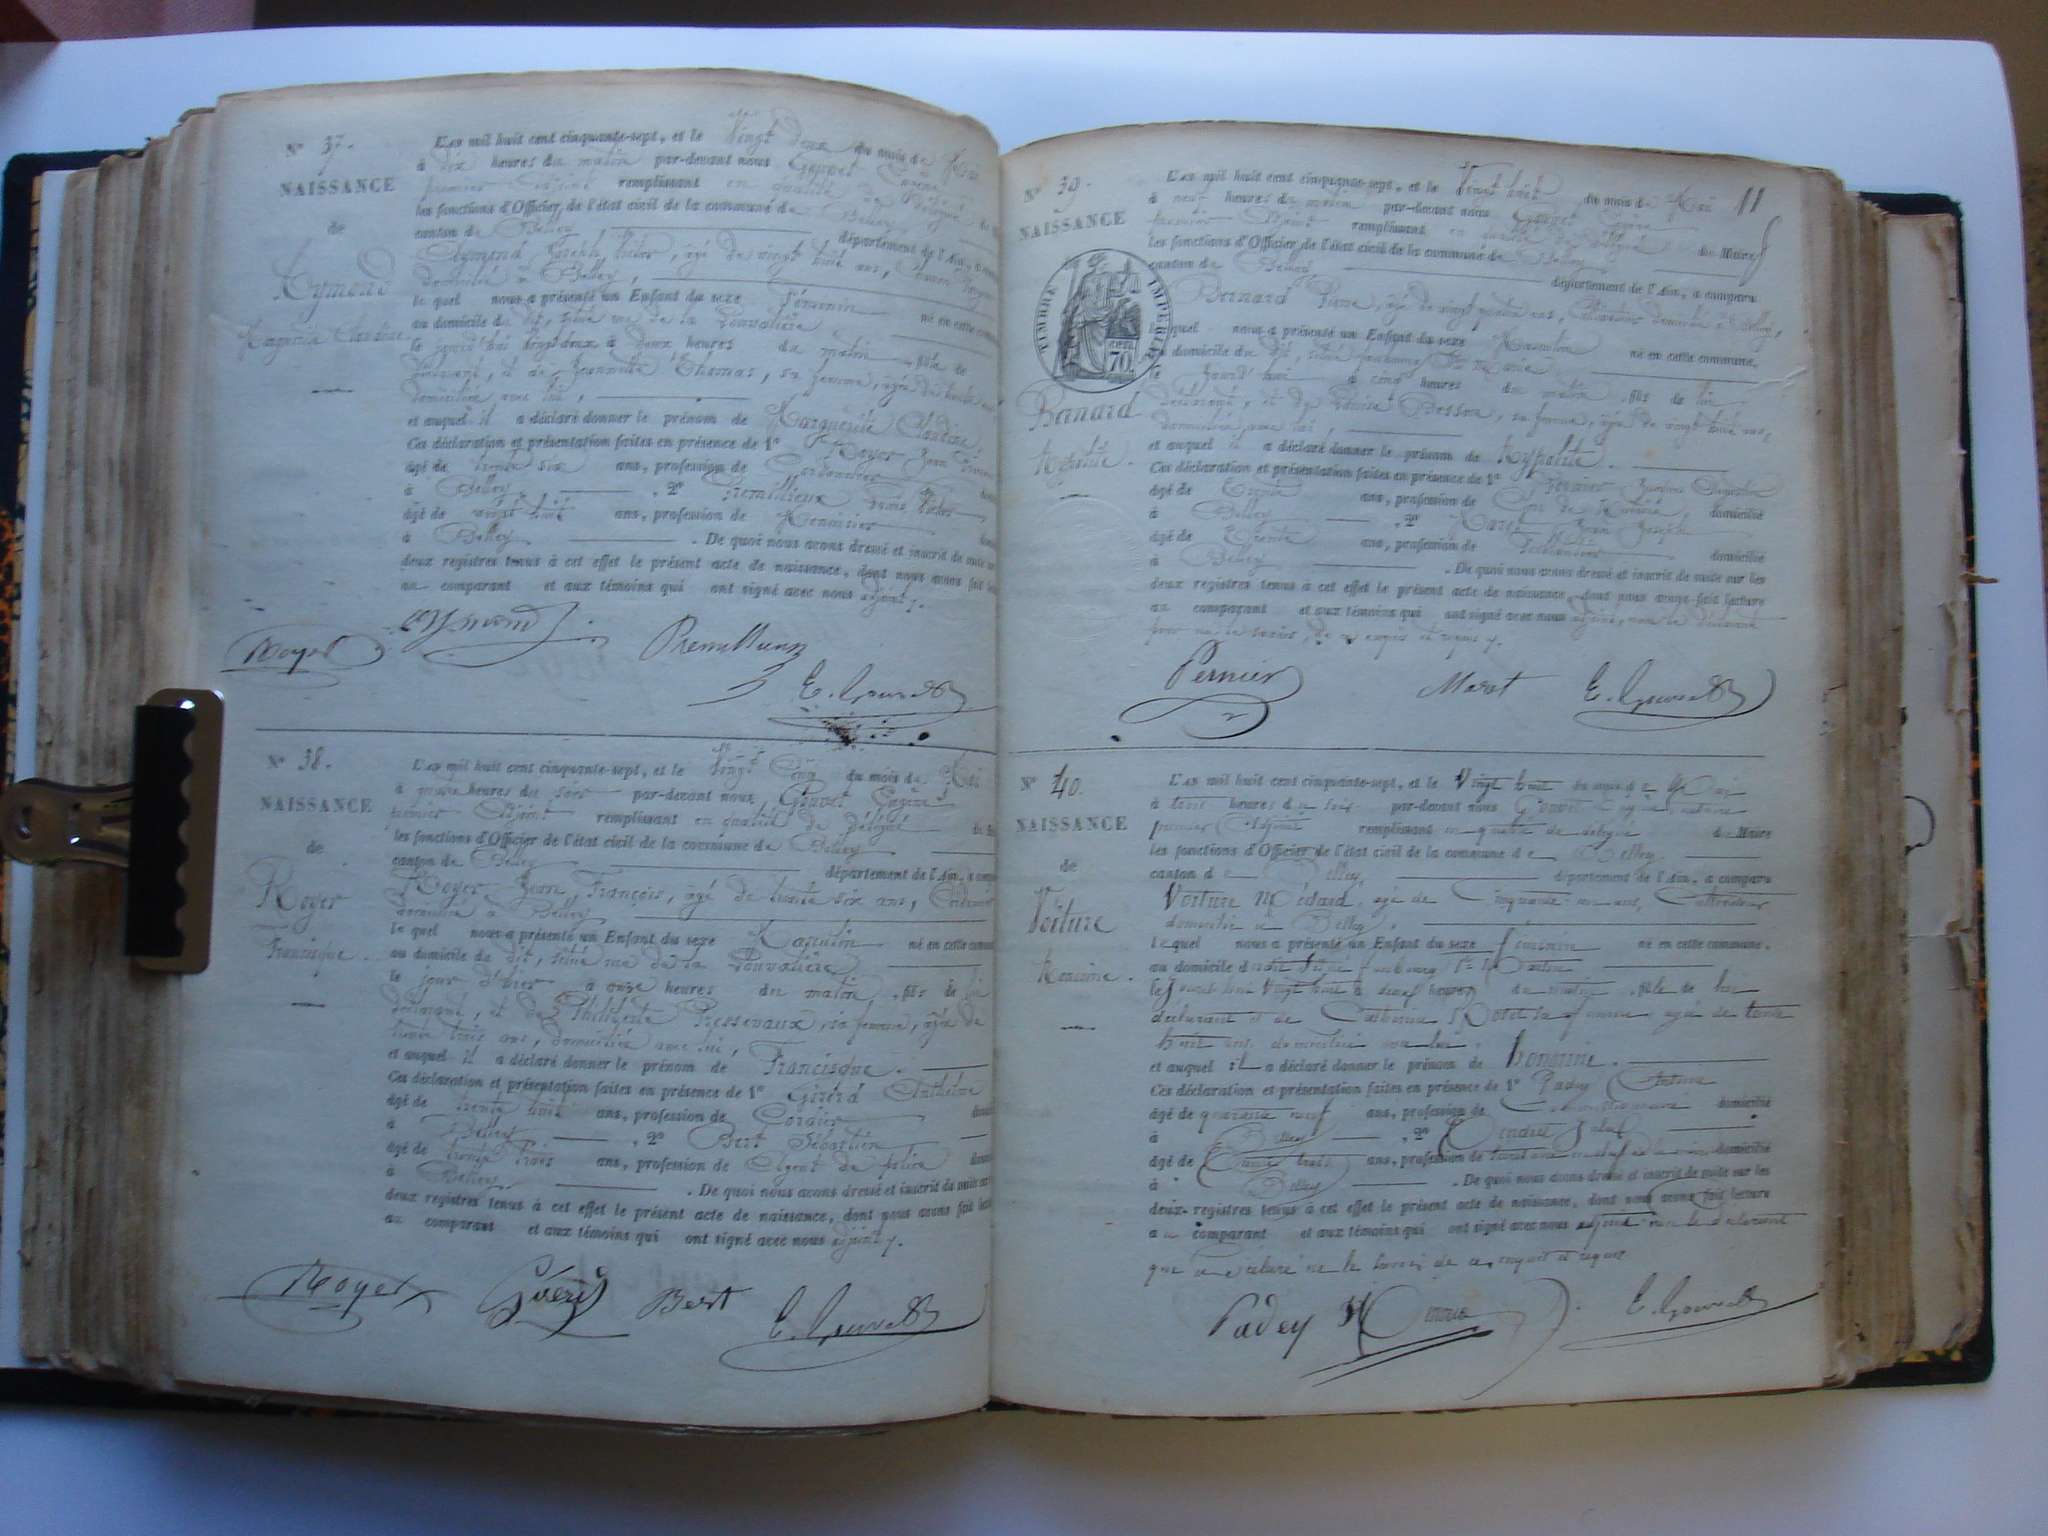 N° 37.
NAISSANCE
de
Aymond
Marguerite Claudine
L'an mil huit cent cinquante-sept, et le Vingt deux du mois de
à dix heures du matin par-devant nous Gouvet Eugène
premier Adjoint remplissant en qualité de délégué
les fonctions d'Officier de l'état civil de la commune de Belley
canton de Belley département de l'Ain, a comparu
Aymond Joseph, âgé de vingt huit ans,
domicilié à Belley,
le quel nous a présenté un Enfant du sexe féminin né en cette commune
au domicile du dit, situé rue de la Pouvatière
le jourd'hui vingt deux à deux heures du matin, fille de
déclarant, et de Jeannette Thomas, sa femme, âgée de trente
domiciliée avec lui,
et auquel il a déclaré donner le prénom de Marguerite Claudine,
Ces déclaration et présentation faites en présence de 1° Royer Jean
âgé de trente six ans, profession de Cordonnier
à Belley, 2°
âgé de vingt huit ans, profession de Menuisier
à Belley. De quoi nous avons dressé et inscrit de suite
deux registres tenus à cet effet le présent acte de naissance, dont nous avons fait
au comparant et aux témoins qui ont signé avec nous adjoint.
Royer Aymond E. Gouvet
N° 38.
NAISSANCE
de
Royer
Francisque.
L'an mil huit cent cinquante-sept, et le Vingt Cinq du mois de Mai
à heures du soir par-devant nous Gouvet Eugène
premier Adjoint remplissant en qualité de délégué
les fonctions d'Officier de l'état civil de la commune de Belley
canton de Belley département de l'Ain, a comparu
Royer Jean François, âgé de trente six ans,
domicilié à Belley
le quel nous a présenté un Enfant du sexe Masculin né en cette commune
au domicile du dit, situé rue de la Pouvatière
le jour d'hier à onze heures du matin, fils de lui
déclarant, et de Philiberte Pressevaux, sa femme, âgée de
trente trois ans, domiciliée avec lui,
et auquel il a déclaré donner le prénom de Francisque.
Ces déclaration et présentation faites en présence de 1° Anthelme
âgé de trente huit ans, profession de Cordier
à Belley, 2° Bert Sébastien
âgé de trente trois ans, profession de Agent de police
à Belley. De quoi nous avons dressé et inscrit de suite sur
deux registres tenus à cet effet le présent acte de naissance, dont nous avons fait
au comparant et aux témoins qui ont signé avec nous adjoint.
Royer Bert E. Gouvet
11
N° 39.
NAISSANCE
TIMBRE IMPÉRIAL
70
Bernard
Hypolite.
L'an mil huit cent cinquante-sept, et le Vingt huit du mois de Mai
à neuf heures du matin par-devant nous Gouvet Eugène
premier Adjoint remplissant en qualité de délégué du Maire
les fonctions d'Officier de l'état civil de la commune de Belley
canton de Belley département de l'Ain, a comparu
Bernard Pierre, âgé de vingt quatre ans, domicilié à Belley,
le quel nous a présenté un Enfant du sexe Masculin né en cette commune.
au domicile du dit, situé faubourg
le jourd'hui à cinq heures du matin, fils de lui
déclarant, et de Louise Besson, sa femme, âgée de vingt huit ans,
domiciliée avec lui,
et auquel il a déclaré donner le prénom de Hypolite.
Ces déclaration et présentation faites en présence de 1° Pernier
âgé de Trente ans, profession de domicilié
à Belley, 2° Marat Jean Joseph
âgé de Trente ans, profession de Ferblantier domicilié
à Belley. De quoi nous avons dressé et inscrit de suite sur les
deux registres tenus à cet effet le présent acte de naissance, dont nous avons fait lecture
au comparant et aux témoins qui ont signé avec nous adjoint, non le déclarant
pour ne le savoir, de ce enquis et requis.
Pernier Marat E. Gouvet
N° 40.
NAISSANCE
de
Voiture
Honorine.
L'an mil huit cent cinquante-sept, et le Vingt huit du mois de Mai
à trois heures du soir par-devant nous Gouvet Eugène, notaire
premier Adjoint remplissant en qualité de délégué du Maire
les fonctions d'Officier de l'état civil de la commune de Belley
canton de Belley, département de l'Ain, a comparu
Voiture Médard, âgé de Cinquante ans, Cultivateur
domicilié à Belley,
le quel nous a présenté un Enfant du sexe féminin né en cette commune.
au domicile du dit situé faubourg St Martin
le jourd'hui vingt huit à neuf heures du matin, fille de lui
déclarant et de Catherine sa femme âgée de trente
huit ans domiciliée avec lui,
et auquel il a déclaré donner le prénom de honorine.
Ces déclaration et présentation faites en présence de 1° Padey Antoine
âgé de quarante neuf ans, profession de Commissionnaire domicilié
à Belley, 2°
âgé de trente trois ans, profession de domicilié
à Belley. De quoi nous avons dressé et inscrit de suite sur les
deux registres tenus à cet effet le présent acte de naissance, dont nous avons fait lecture
au comparant et aux témoins qui ont signé avec nous adjoint non le déclarant
que a déclaré ne le savoir de ce enquis et requis
Padey E. Gouvet